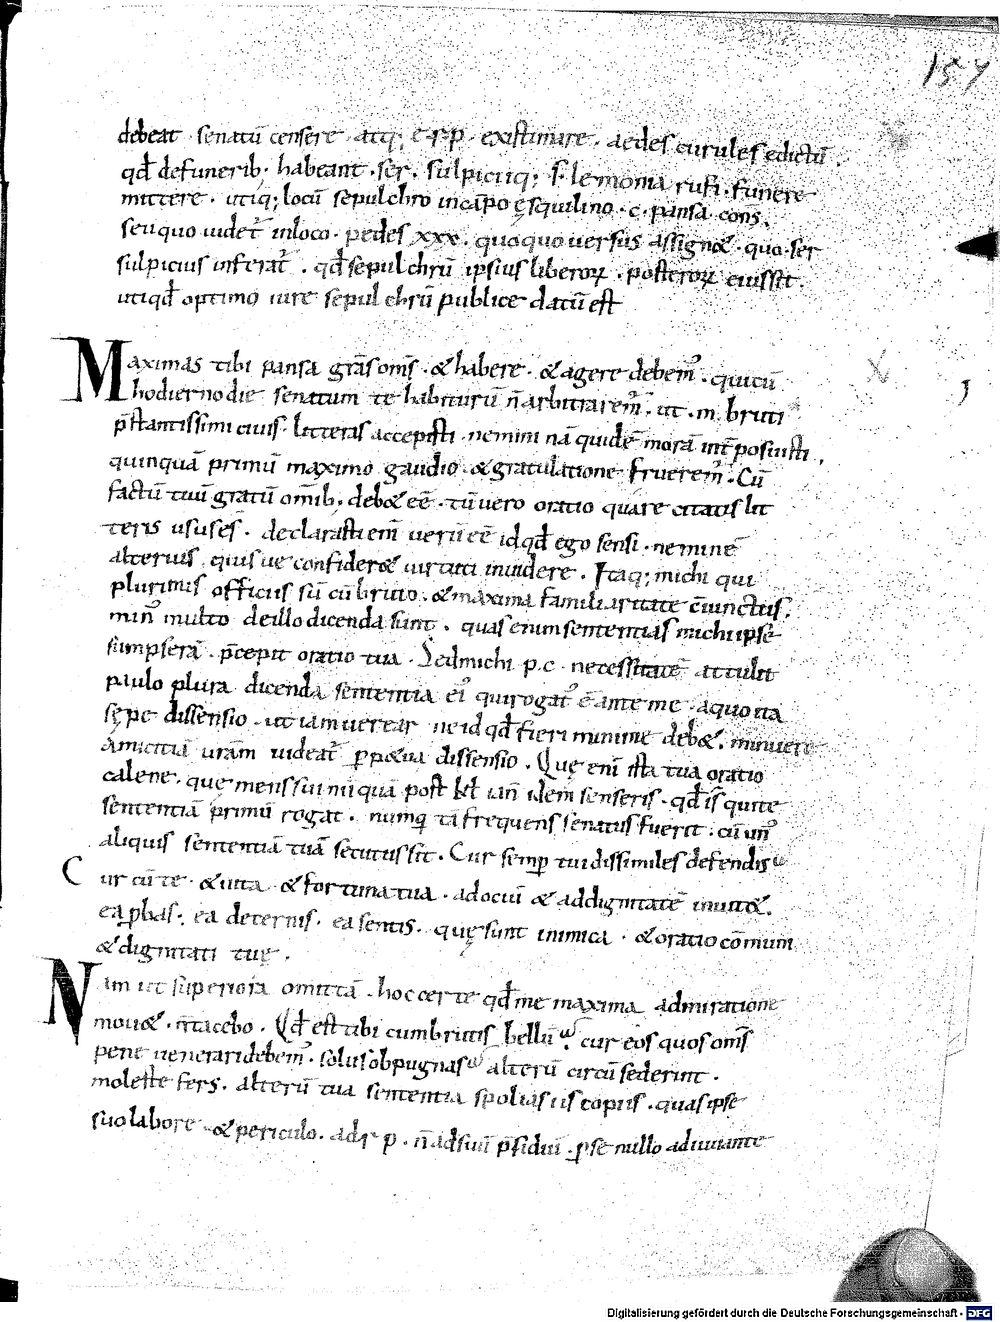 157
debeat · senatū censere · atq; e · r · p · existimare · aedes curules edictū ·
qđ de funerib; habeant · ser · sulpicii q; f · lemonia rufi · funere
mittere · utiq; locū sepulchro in cāpo esquilino · c · pansa cons ·
seu quo uidet̄ in loco · pedes xxx · quoquouersus assignet · quo · ser
sulpicius inferat̄ · qđ sepulchrū ipsius liberorū · posterorū eius sit ·
uti qđ optimo iure sepulchrū publice datū est
Maximas tibi pansa grās oms̄ · & habere · & agere debem' · qui cū
hodierno die senatum te habiturū n̄ arbitrarem' · ut · m · bruti
p̄stantissimi ciuis · litteras accepisti · nemini nā quidē morā int̄posuisti ·
quin quā primū maximo gaudio · & gratulatione frueremˀ · Cū
factū tuū gratū omib; deb& eē · tū uero oratio qua recitatis lit
teris usus es · declarasti enī uerū eē id qđ ego sensi · neminē
alterius qui suę confider& uirtuti inuidere · Itaq; michi qui
plurimis officiis sū cū bruto · & maxima familiaritate c̄iunctus ·
min' multo de illo dicenda sunt · quas enim sententias michi ipse
sumpserā · p̄cepit oratio tua · Sed michi p · c · necessitatē attulit
paulo plura dicenda sententia ei' qui rogat' ē ante me · a quo ita
sępe dissensio · ut iam uerear ne id qđ fieri minime deb& · minuere
Amicitiā urām uideat̄ ꝑp&ua dissensio · Quę enī ista tua oratio
calene · que mens
sententiā primū rogat · numq̄ tā frequens senatus fuerit · cū un'
aliquis sententiā tuā secutus sit · Cur semꝑ tui dissimiles defendis
Cur cū te · & uita & fortuna tua · ad ociū & ad dignitatē inuit& ·
ea ꝓbas · ea decernis · ea sentis · quę sunt inimica · & ocio cōmuni
& dignitati tuę ·
Nam ut superiora omittā · hoc certe qđ me maxima admiratione
mou& · n̄ tacebo · Qđ est tibi cum brutis bellū cur eos quos oms̄
pene uenerari debem' · solus obpugnas alterū circūsederint ·
moleste fers · alterū tua sententia spolias iis copiis · quas ipse
suo labore · & periculo · ad r p · n̄ ad suū p̄sidiū · ꝑ se nullo adiuuante
Digitalisierung gefördert durch die Deutsche Forschungsgemeinschaft - DFG